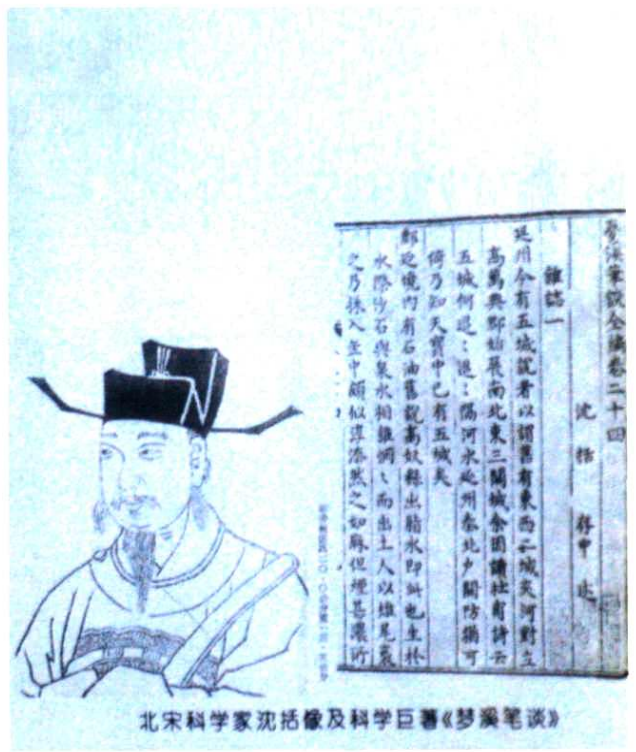 夢溪筆談全編卷二十四
沈括 存中 述
雜誌一
延州今有五城說者以謂舊有東西二城夾河對立
高萬興郡始展南北東三關城余因讀杜甫詩云
五城何迢〻迢〻隔河水延州秦北戶關防猶可
倚乃知天寶中已有五城矣
鄜延境內有石油舊說高奴縣出脂水即此也生於
水際沙石與泉水相雜惘〻而出土人以雉尾裛
之乃採入缶中頗似淳漆然之如麻但煙甚濃所
北宋科学家沈括像及科学巨著《梦溪笔谈》